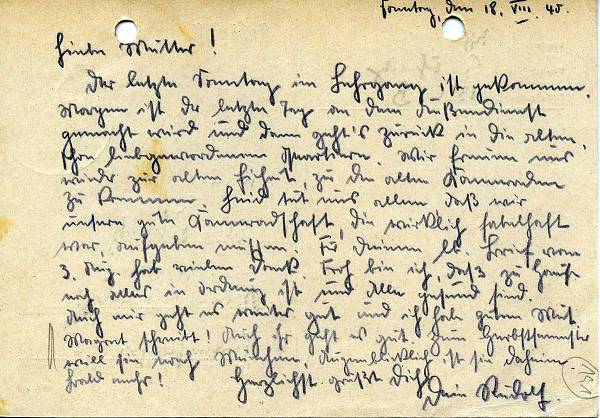 Sonntag, den 18. VIII. 40.
Liebe Mutter!
Der letzte Sonntag im Lehrgang ist gekommen.
Morgen ist der letzte Tag an dem Außendienst
gemacht wird und dann geht's zurück in die alten,
schon liebgewordenen Quartiere. Wir freuen uns
wieder zur alten Einheit, zu den alten Kameraden
zu kommen. Leid tut uns allen daß wir
unsere gute Kameradschaft, die wirklich fabelhaft
war, aufgeben müssen. Für Deinen lb. Brief vom
3. Aug. hab vielen Dank. Froh bin ich, daß zu Hause
noch alles in Ordnung ist und Alle gesund sind.
Auch mir geht es weiter gut und ich habe guten Mut.
Margret schreibt! Auch ihr geht es gut zum Herbstsemester
will sie nach München. Augenblicklich ist sie daheim.
bald mehr! Herzlichst grüßt Dich
Dein Rudolf.